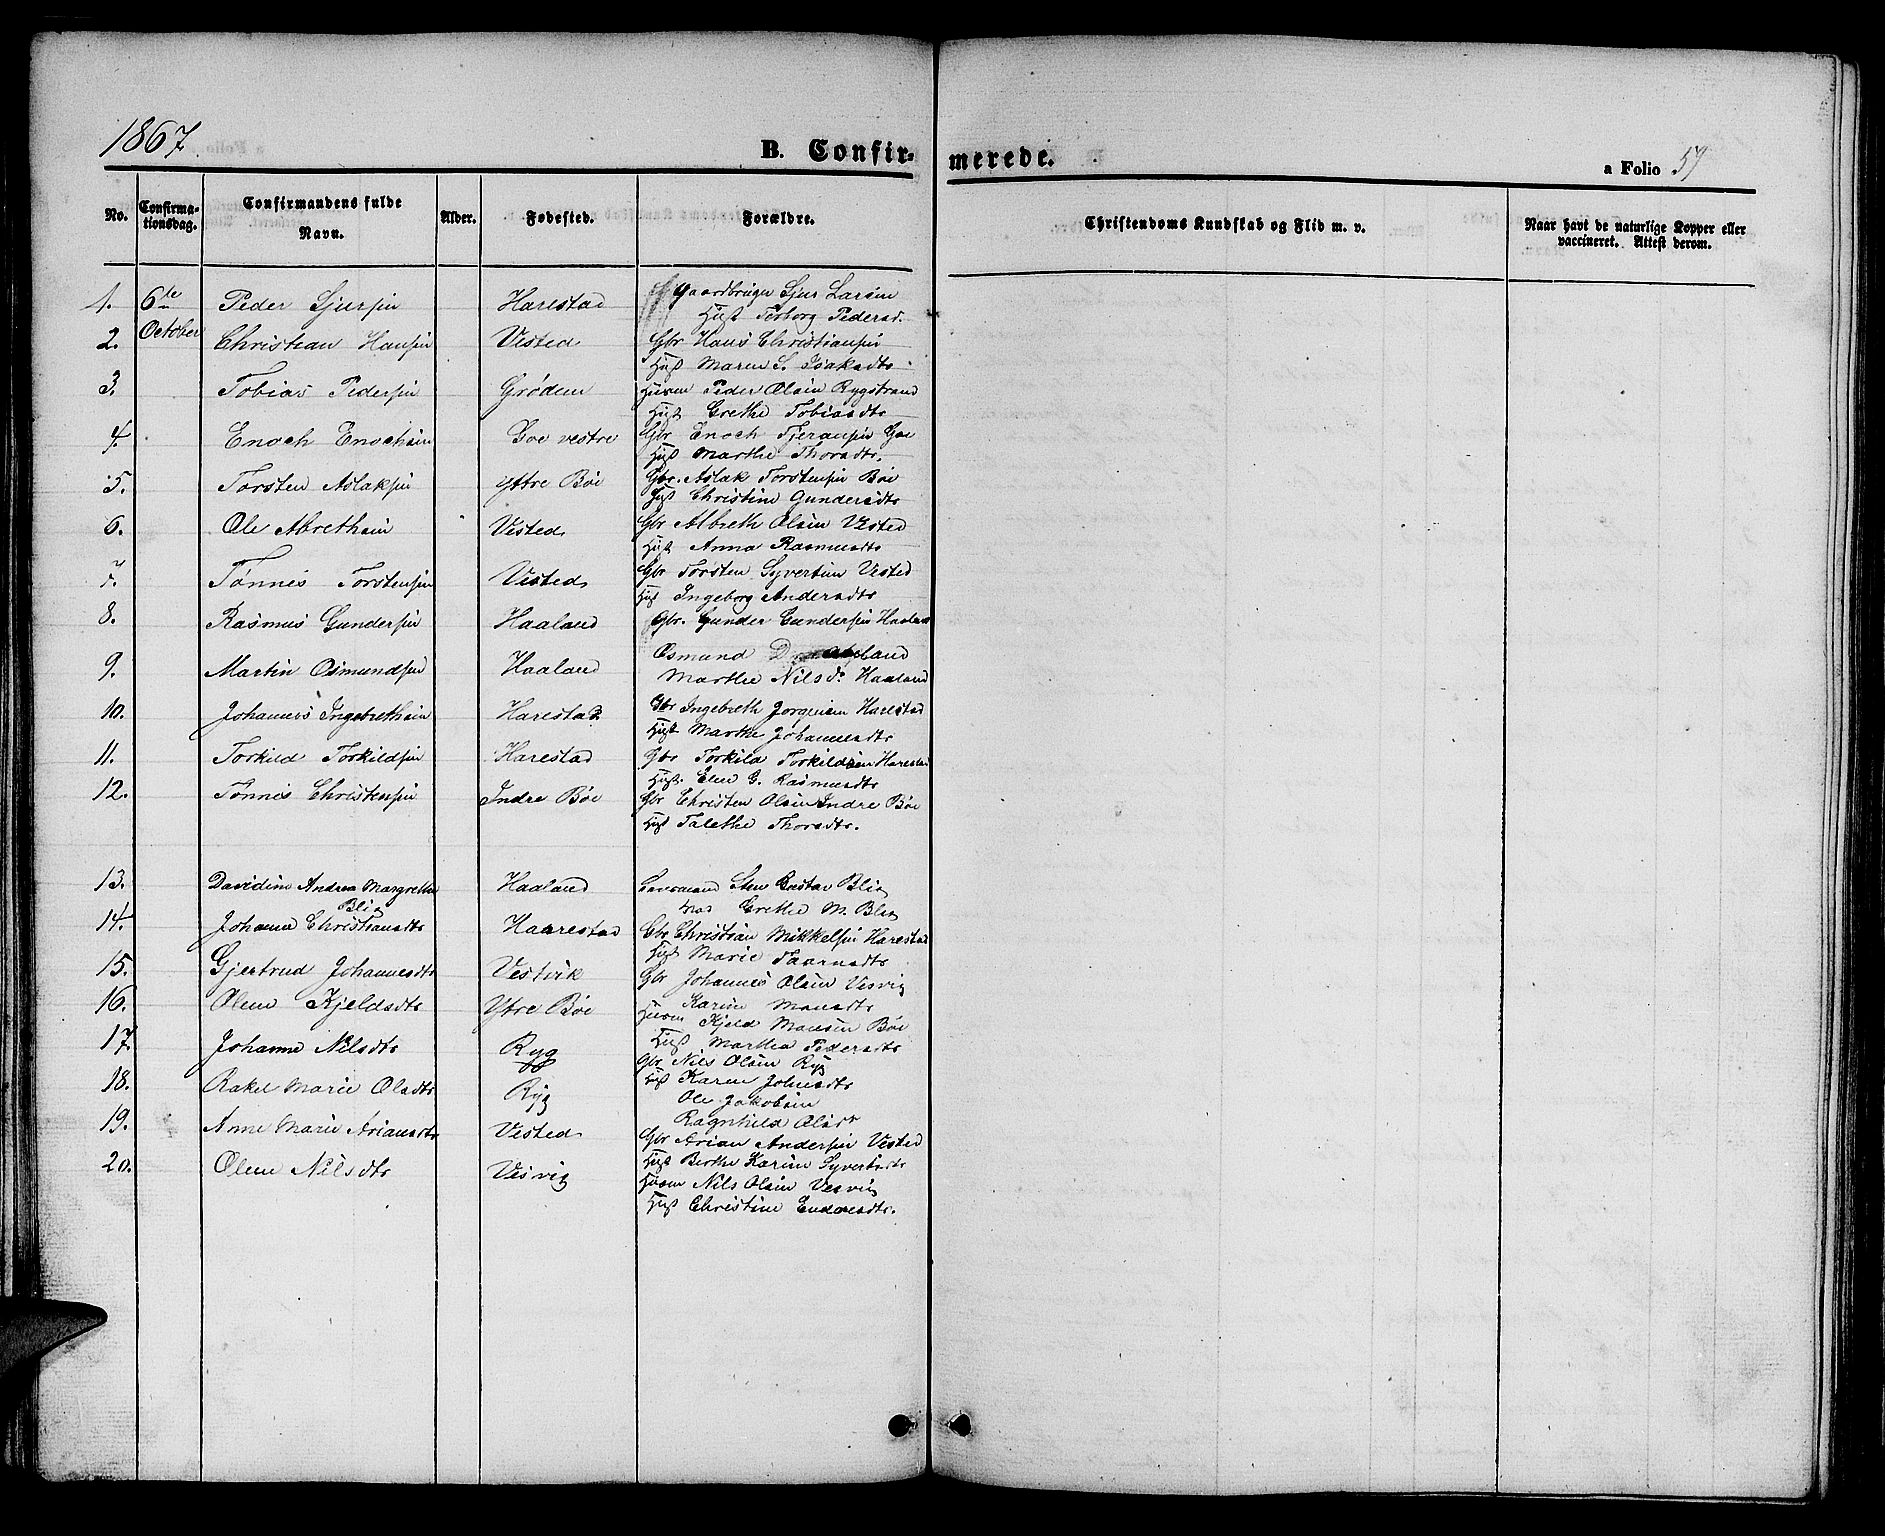 1867.
B. Confir-
merede.
a Folio 57
No.
Confirma-
tionsdag.
Confirmandens fulde
Navn.
Alder.
Fødested.
Forældre.
Christendoms Kundskab og Flid m. v.
Naar havt de naturlige Kopper eller
vaccineret. Attest derom.
1. 6te Peder Sjursen Harestad Gaardbruger Sjur Larsen
Hust Torborg Pedersd.
2. October Christian Hansen Visted Gbr Hans Christiansen
Hust Maren S. Isaksdtr
3. Tobias Pedersen Grødem Husm Peder Olsen Rygstrand
Hust Grethe Tobiasdtr
4. Enoch Enochsen Goe vestre Gbr Enoch Tjeransen Goe
Hust Marthe Thorsdtr.
5. Torsten Aslaksen Yttre Bøe Gbr. Aslak Torstensen Bøe
Hust Christine Gundersdtr
6. Ole Albrethsen Visted Gbr Albreth Olsen Visted
Hust Anna Rasmusdtr
7. Tønnes Torstensen Visted Gbr Torsten Syvertsen Visted
Hust Ingeborg Andersdtr
8. Rasmus Gundersen Haaland Gbr. Gunder Gundersen Haaland
9. Martin Osmundsen Haaland Osmund
Marthe Nilsd. Haaland
10. Johannes Ingebrethsen Harestad Gbr Ingebreth Jørgensen Harestad
Hust Marthe Johannesdtr
11. Torkild Torkildsen Harestad Gbr Torkild Torkildsen Harestad
Hust. Elen G. Rasmusdtr
12. Tønnes Christensen Indre Bøe Gbr Christen Olsen Indre Bøe
Hust Talethe Thorsdtr.
13. Davidine Andrea Margrethe Haaland Lensmand Sten Gustav Blix
Blix Mad Grethe M. Blix
14. Johanne Christiansdtr Haarestad Gbr Christian Mikkelsen Harestad
Hust Marie
15. Gjertrud Johannesdtr Vestvik Gbr Johannes Olsen Vesvig
Karine Monsdtr
16. Olene Kjeldsdtr Ytre Bøe Husm Kjeld Monsen Bøe
Hust Marthea Pedersdtr
17. Johanne Nilsdtr Ryg Gbr Nils Olsen Ryg
Hust Karen Johnsdtr
18. Rakel Marie Olsdtr Ryg Ole Jakobsen
Ragnhild Olsdtr
19. Anne Marie Ariansdtr Visted Gbr Arian Andersen Visted
Hust Berthe Karine Syvertsdtr
20. Olene Nilsdtr Vesvig Husm Nils Olsen Vesvig
Hust Christine Endresdtr.